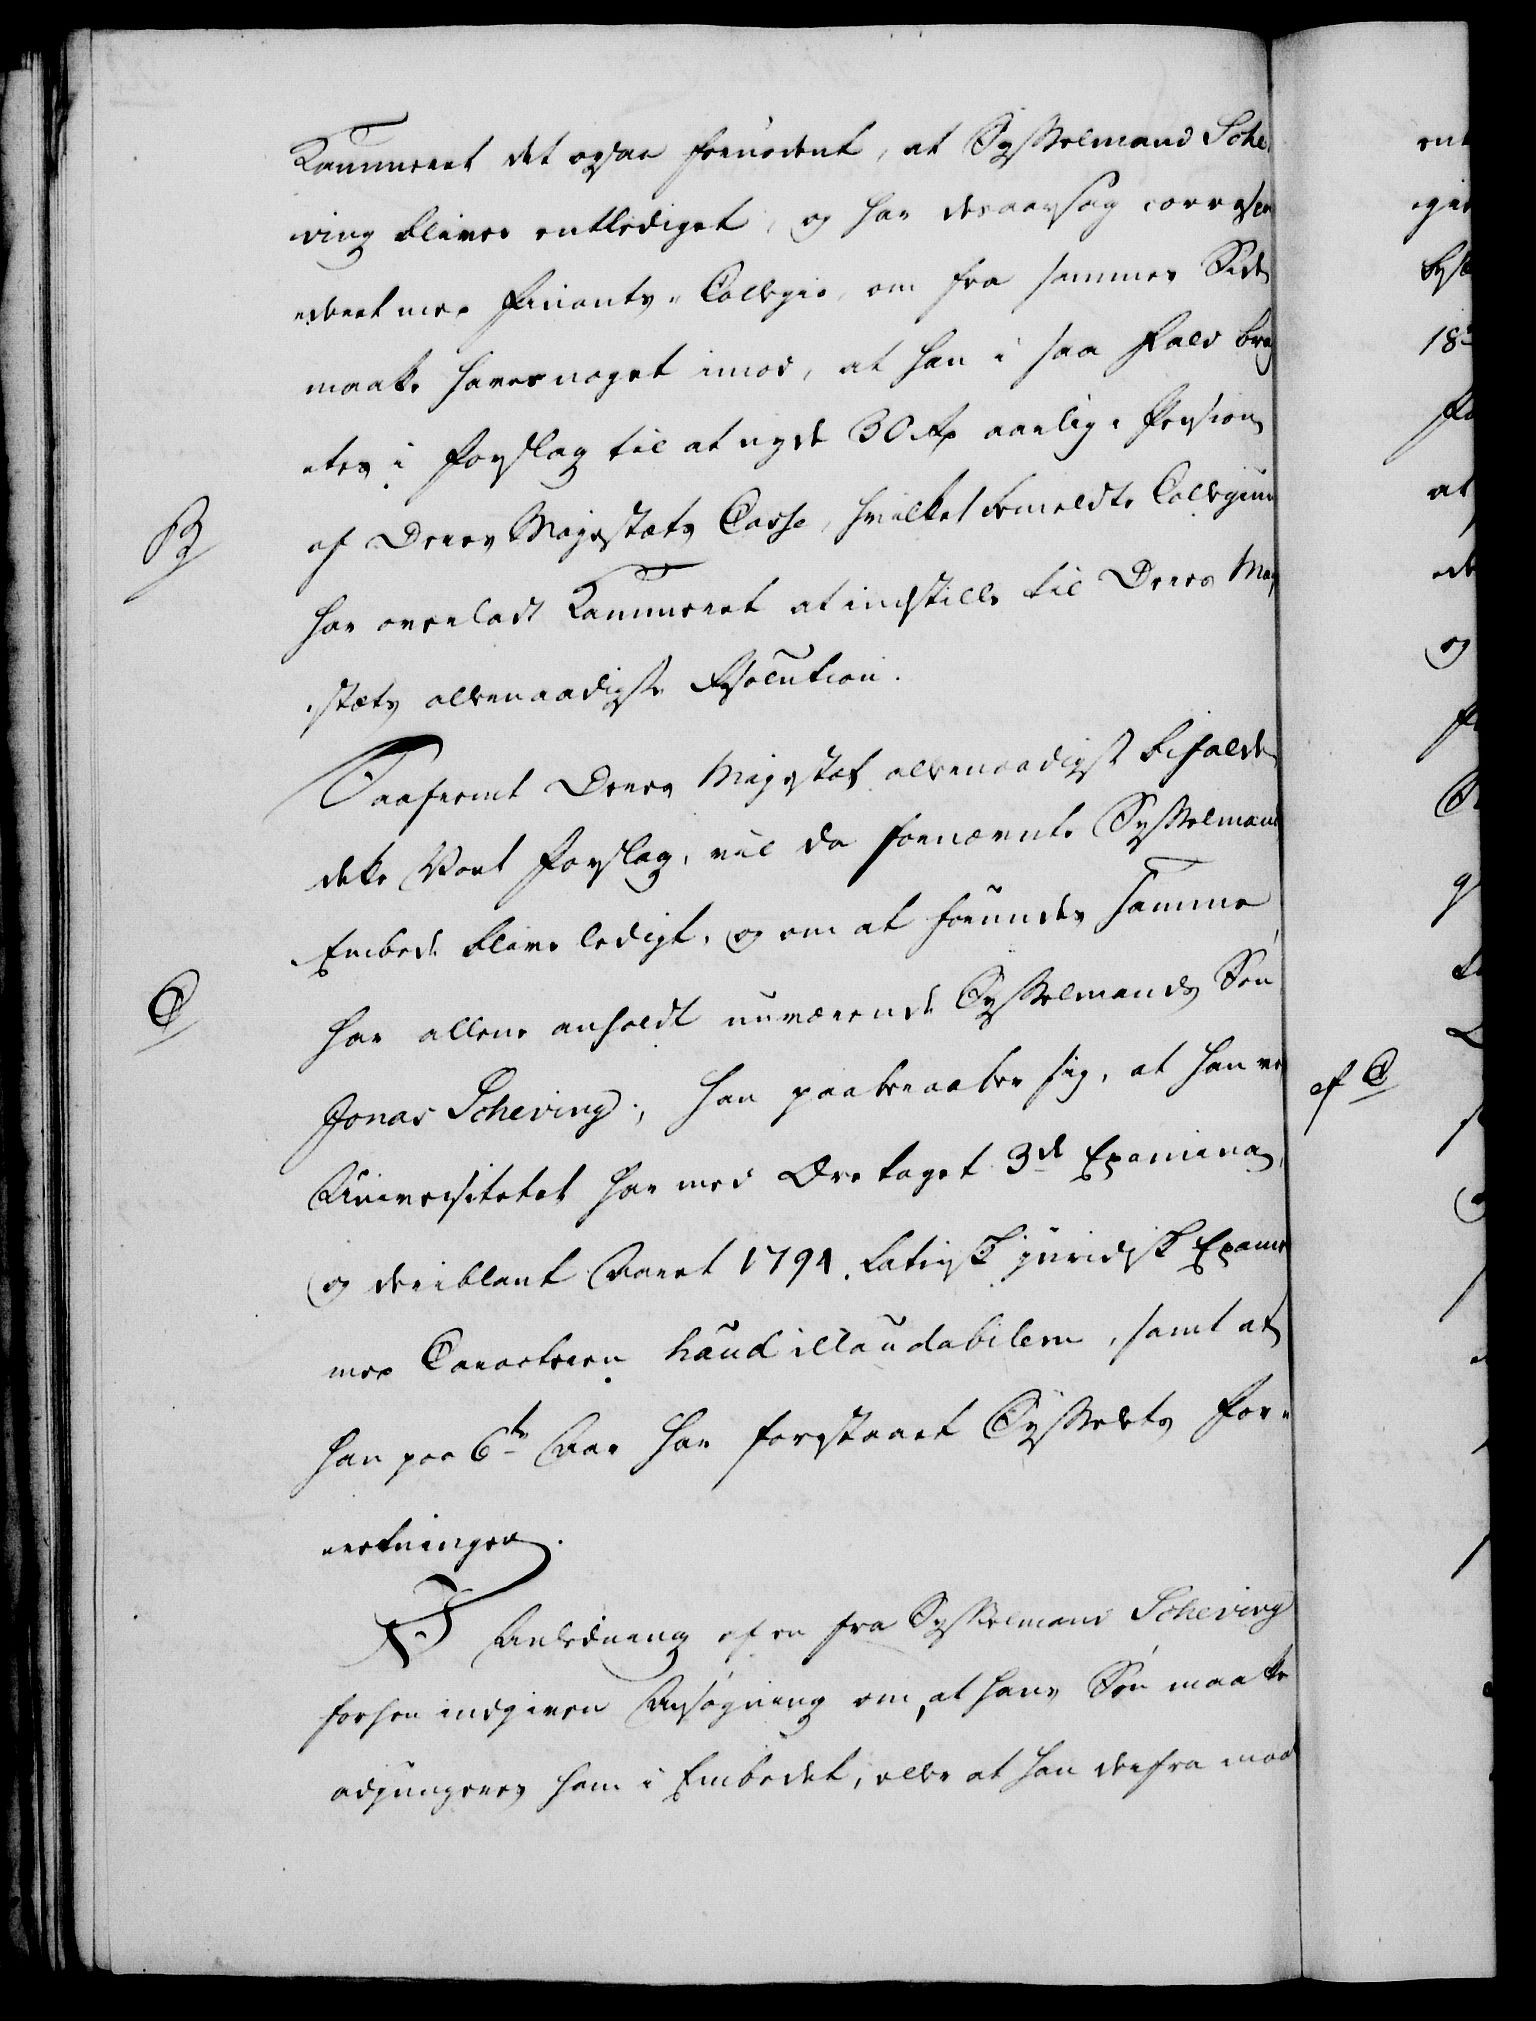 Kammeret det ogsaa fornødent, at Sysselmand Sche-
ving bliver entlediget, og har desaarsag correspon
deret med Finants-Collegio, om fra sammes Side
maatte haves noget imod, at han i saa Fald brag
tes i Forslag til at nyde 30 Rd aarlig Pension
af Deres Majestæts Casse, hvilket bemeldte Collegium
B
har overladt Kammeret at indstille til Deres Maje
stæts allernaadigste Resolution.
Saafremt Deres Majestæt allernaadigst bifalder
dette Vort Forslag, vil da fornævnte Sysselmand
Embede blive ledigt, og om at forundes Samme,
C
har allene anholdt nuværende Sysselmands Søn
Jonas Scheving; han paaberaaber sig, at han ved
Universitetet har med Ære taget 3de Examina,
og deriblant Aaret 1794 Latinsk juridisk Examen
med Caracteren haud illaudabilem, samt at
han paa 6te Aar har forestaaet Sysselets For-
retninger.
I Anledning af en fra Sysselmand Scheving
forhen indgiven Ansøgning om, at hans Søn maatte
adjungeres ham i Embedet, eller at han derfra maat
ent
18
at
og
af C